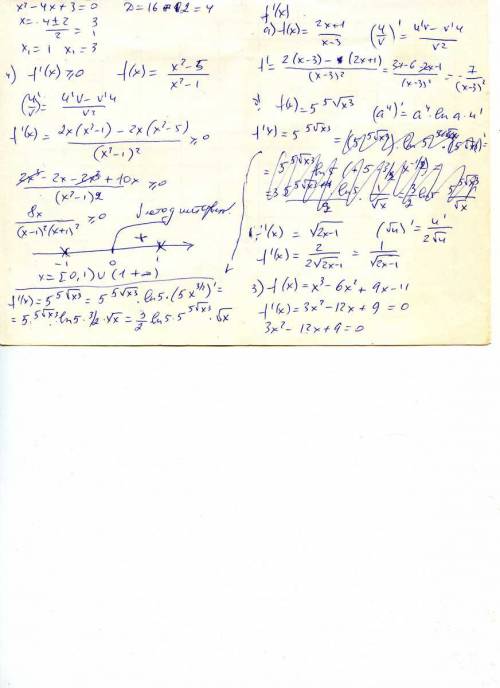 x² - 4x + 3 = 0   D = 16 - 12 = 4
x = (4 ± 2)/2 = 3
1
x₁ = 1   x₁ = 3
4) f'(x) ≥ 0   f(x) = (x² - 5)/(x² - 1)
(u/v)' = (u'v - v'u)/v²
f'(x) = (2x(x² - 1) - 2x(x² - 5))/(x² - 1)² ≥ 0
(2x³ - 2x - 2x³ + 10x)/(x² - 1)² ≥ 0
8x/((x-1)²(x+1)²) ≥ 0
метод интервал
-1   0   +   1
x = [0, 1) ∪ (1 + ∞)
f'(x) = 5^(5√x³) = 5^(5√x³) · ln5 · (5x^(3/2))' =
= 5 · 5^(5√x³) · ln5 · 3/2 · √x = 3/2 ln5 · 5 · 5^(5√x³) · √x
f'(x)
а) f(x) = (2x+1)/(x-3)   (u/v)' = (u'v - v'u)/v²
f' = (2(x-3) - (2x+1))/(x-3)² = (2x - 6 - 2x - 1)/(x-3)² = -7/(x-3)²
f(x) = 5^(5√x³)   (a^u)' = a^u · ln a · u'
f'(x) = 5^(5√x³)
f'(x) = √(2x-1)   (√u)' = u'/(2√u)
f'(x) = 2/(2√(2x-1)) = 1/√(2x-1)
3) f(x) = x³ - 6x² + 9x - 11
f'(x) = 3x² - 12x + 9 = 0
3x² - 12x + 9 = 0